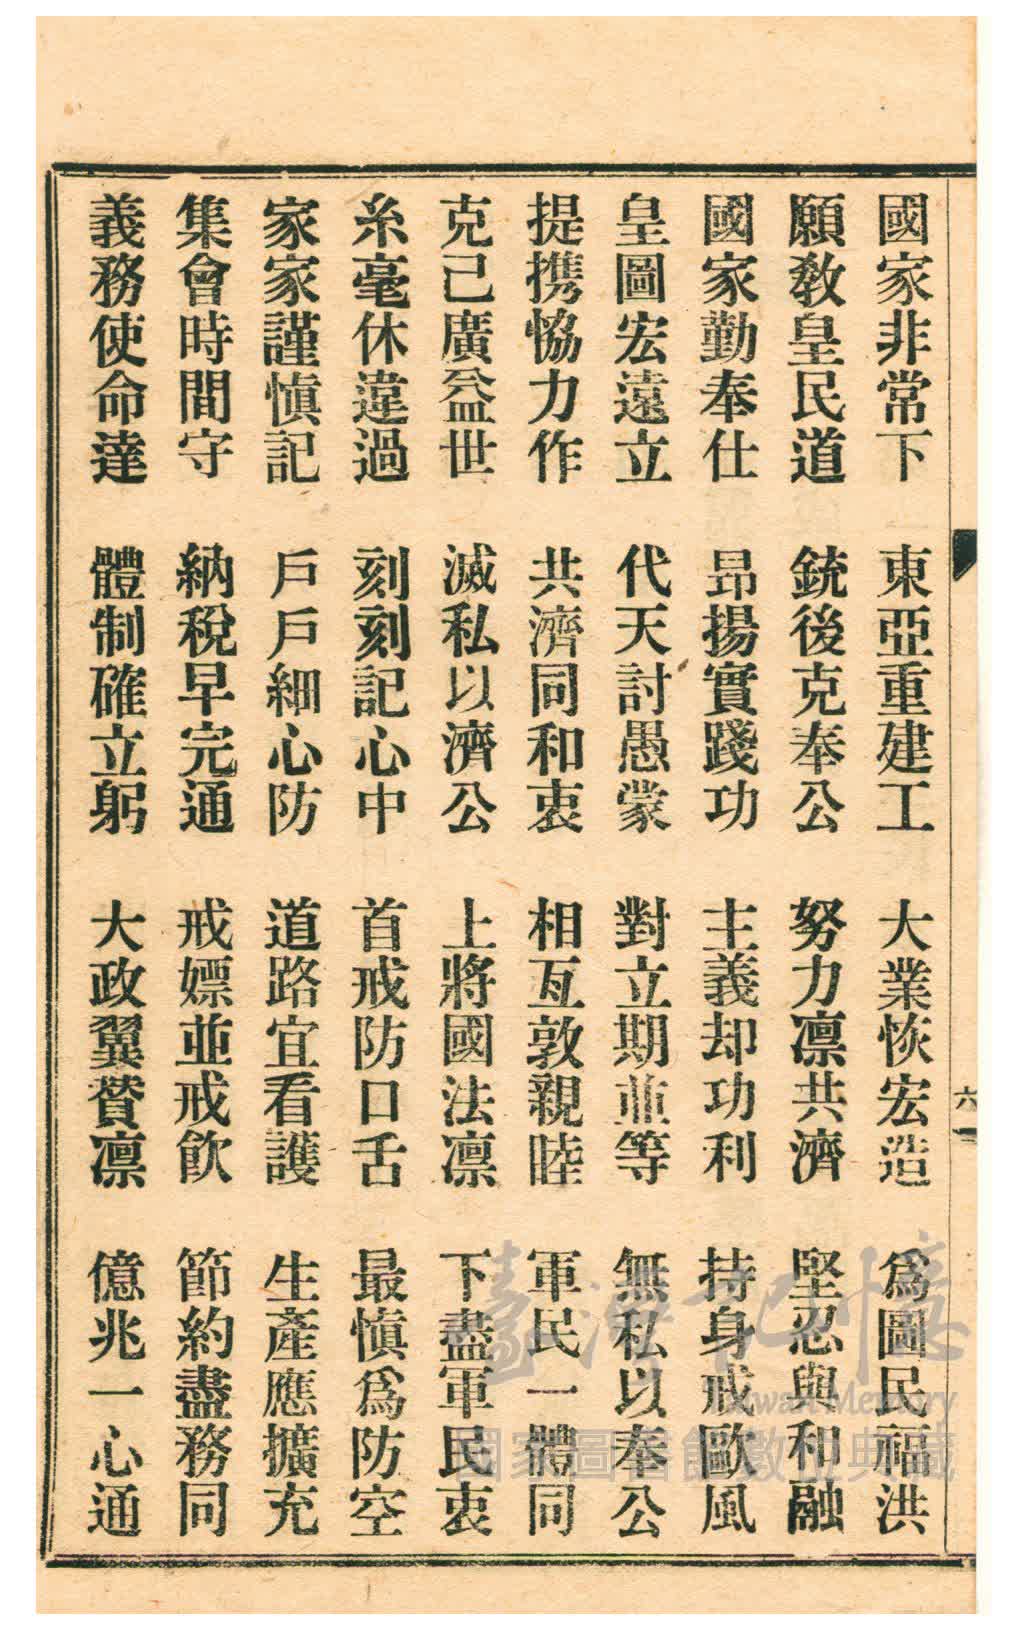 國家非常下 東亞重建工 大業恢宏造 爲圖民福洪
願敎皇民道 銃後克奉公 努力凛共濟 堅忍與和融
國家勤奉仕 昂揚實踐功 主義却功利 持身戒歐風
皇圖宏遠立 代天討愚蒙 對立期並等 無私以奉公
提携恊力作 共濟同和衷 相互敦親睦 軍民一體同
克己廣益世 滅私以濟公 上將國法凛 下盡軍民衷
糸毫休違過 刻刻記心中 首戒防口舌 最愼爲防空
家家謹愼記 戶戶細心防 道路宜看護 生產應擴充
集會時間守 納稅早完通 戒嫖並戒飮 節約盡務同
義務使命達 體制確立躬 大政翼賛凛 億兆一心通
六
臺灣記憶
Taiwan Memory
國家圖書館數位典藏